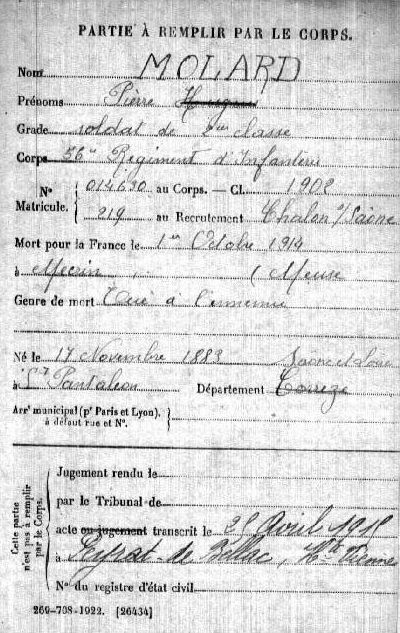 PARTIE À REMPLIR PAR LE CORPS.
Nom MOLARD
Prénoms Pierre
Grade soldat de 2me classe
Corps 56e Régiment d'Infanterie
N° Matricule. { 014630 au Corps. — Cl. 1902
219 au Recrutement Chalon s/Saône
Mort pour la France le 1er Octobre 1914
à Mécrin (Meuse
Genre de mort Tué à l'ennemi
Né le 17 Novembre 1883 Saone et Loire
à St Pantaléon Département Corrèze
Arrt municipal (pr Paris et Lyon),
à défaut rue et N°.
Cette partie n'est pas à remplir par le Corps.
Jugement rendu le
par le Tribunal de
acte ou jugement transcrit le 25 Avril 1915
à Peyrat-de-Bellac, Hte Vienne
N° du registre d'état civil
269-708-1922. [26434]